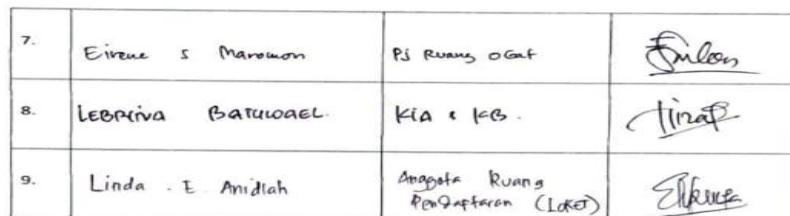 7. Eirene S Maromon PJ Ruang Obat
8. LEBRINA BATUWAEL KIA & KB.
9. Linda . E Anidlah Anggota Ruang
Pendaftaran (Loket)